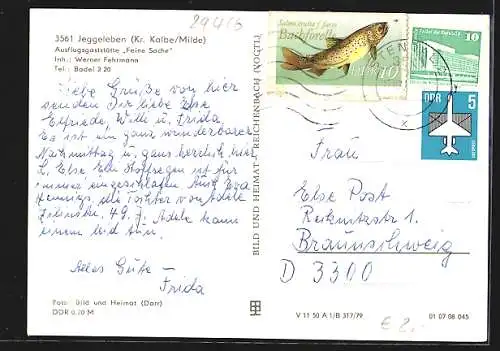 29413
3561 Jeggeleben (Kr. Kalbe/Milde)
Ausflugsgaststätte „Feine Sache"
Inh.: Werner Fehrmann
Tel.: Badel 2 20
Liebe Grüße von hier
senden Dir liebe Else
Elfriede, Willi u. Frida
Es ist ein ganz wunderbarer
Nachmittag u. ganz herrlich hier
L. Else Ein ist für
immer eingeschlafen Auch Eva
Hennigs, die Tochter von Adele
49. J. Adele kann
einem leid tun.
Alles Gute –
Frida
Foto: Bild und Heimat (Darr)
DDR 0,20 M
BILD UND HEIMAT REICHENBACH (VOGTL)
Salmo trutta f. fario
Bachforelle
DDR 10
10
DDR 5
Frau
Else Post
Braunschweig
D 3300
V 11 50 A 1/B 317/79
01 07 08 045
€ 2,-